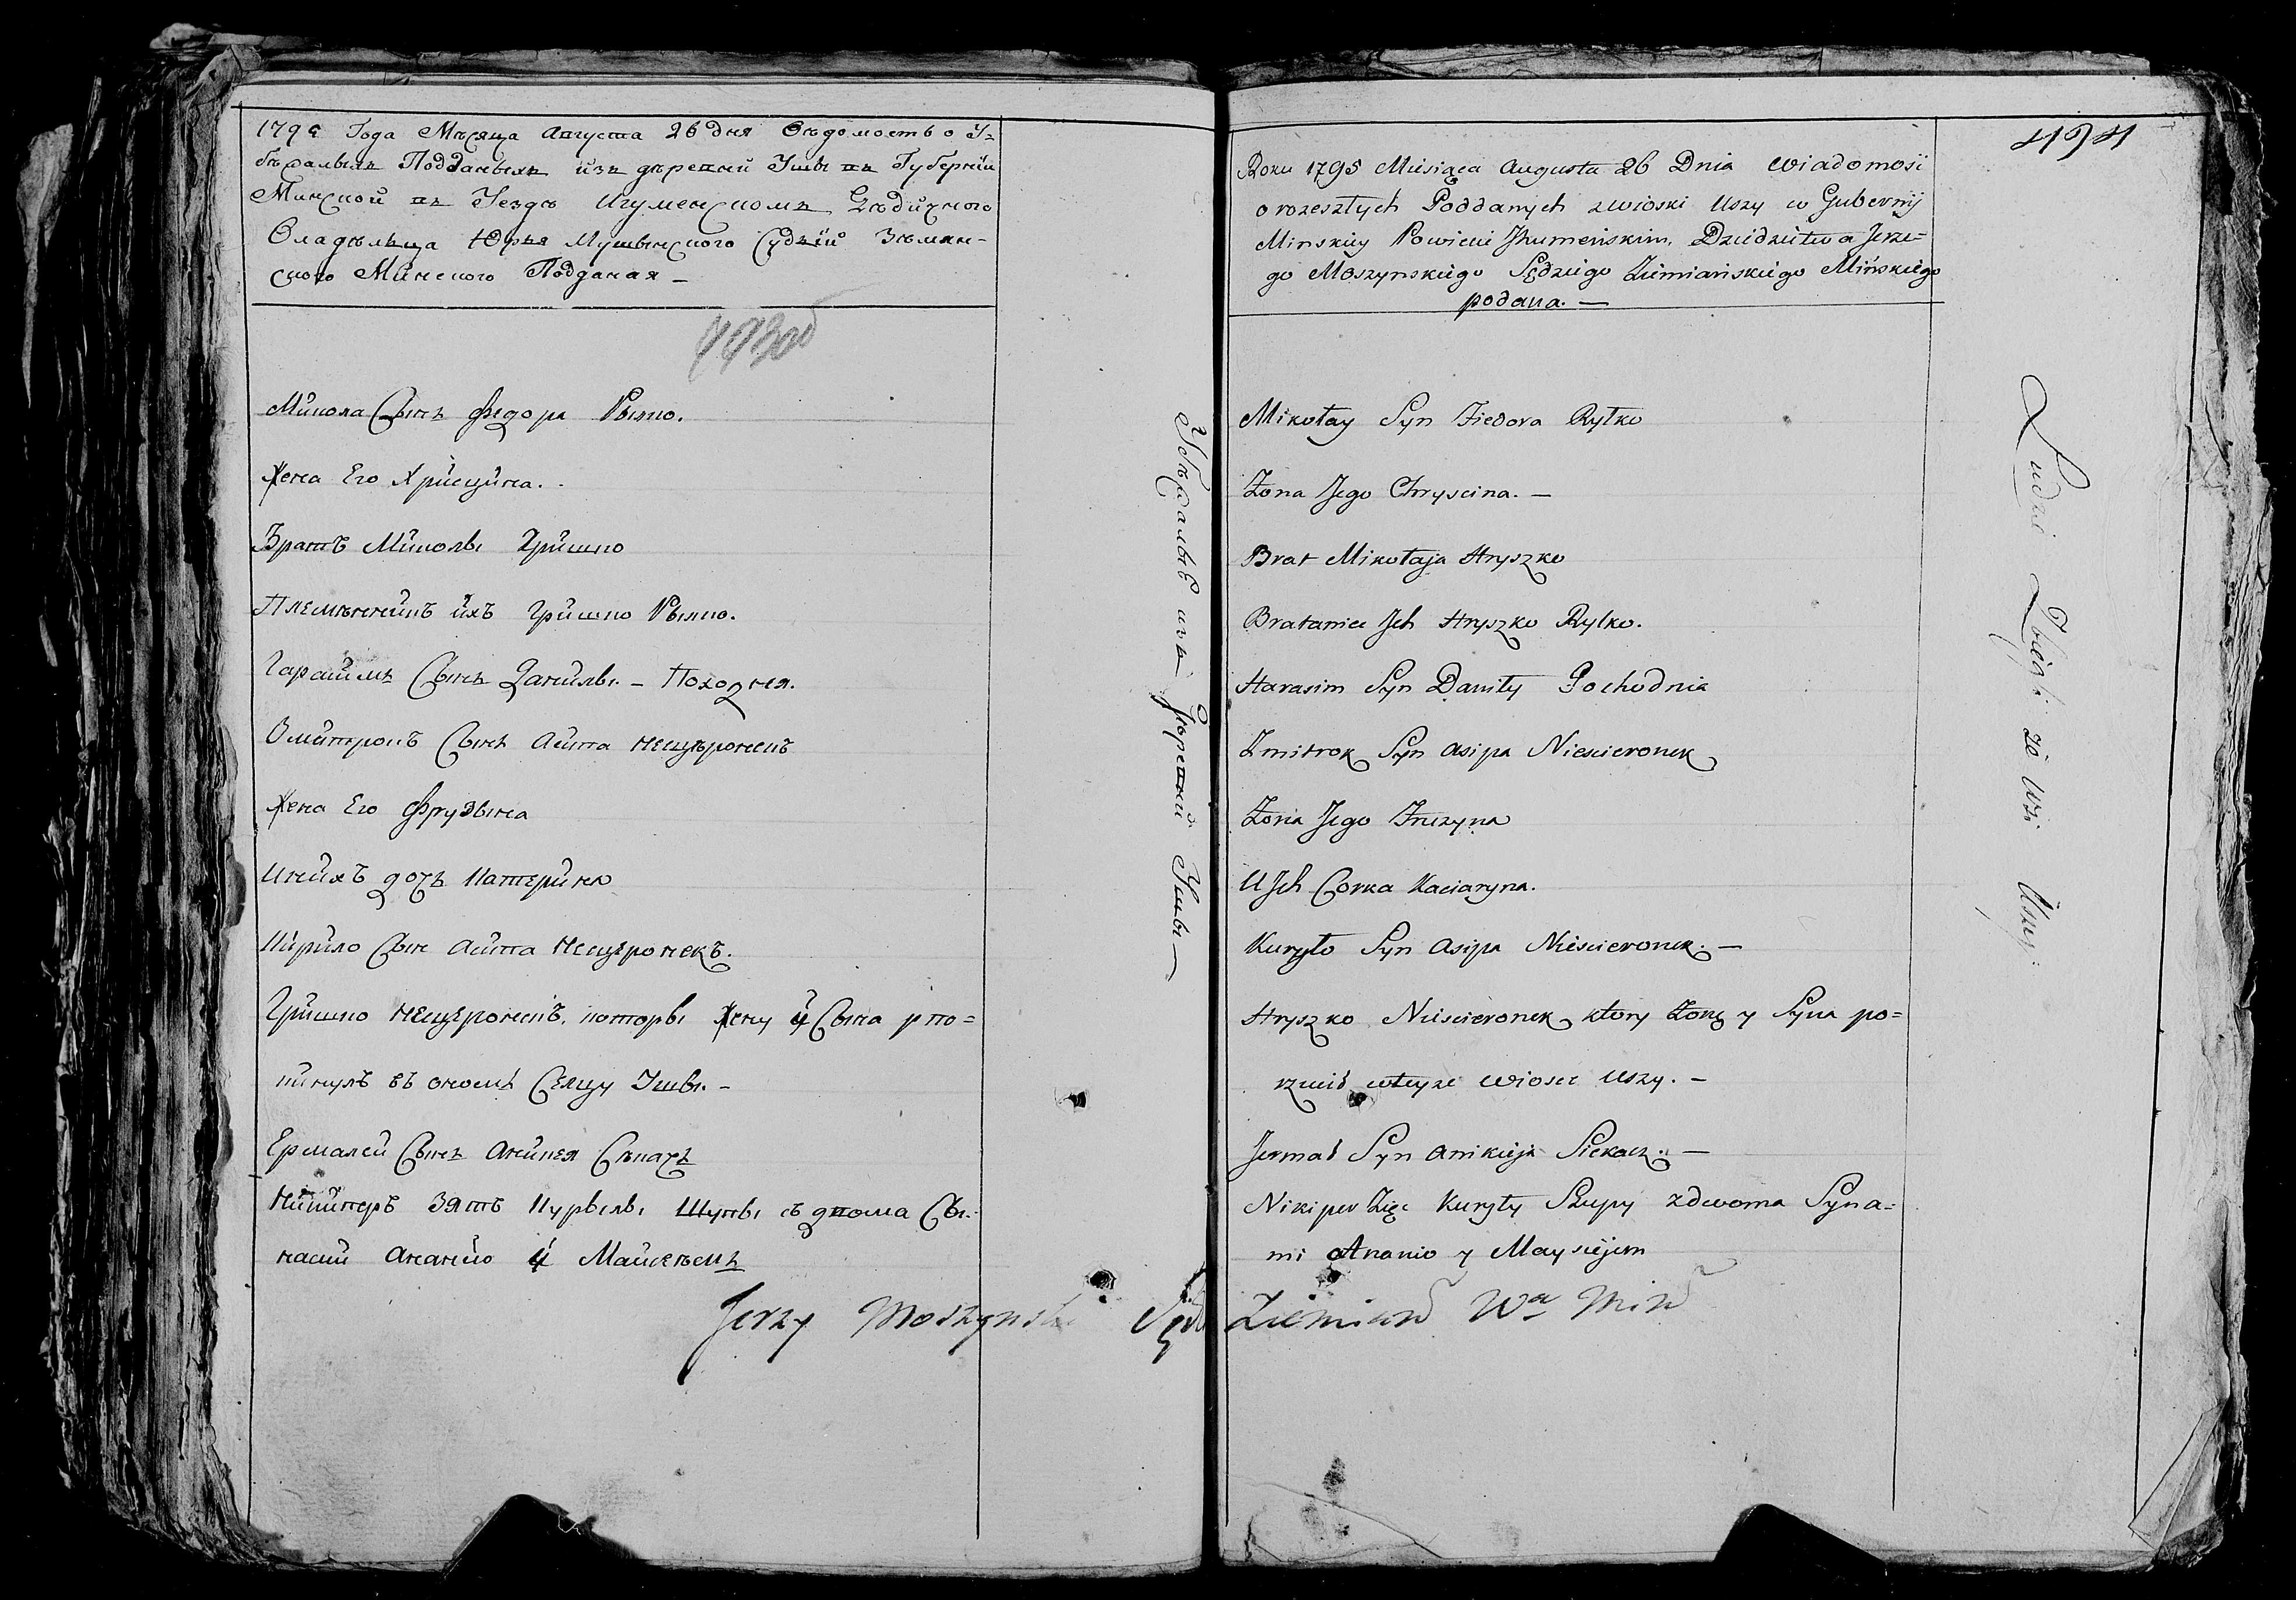 1795 Года Мѣсяца Августа 26 дня Вѣдомость о У=
бѣжалыхъ Подданыхъ изъ деревни Ушы въ Губернїи
Минской въ Уездѣ Игуменскомъ Дѣдичного
Владѣльца Юрья Мушынского Судьїи Земян-
ского Минского Поданая –
493об
Микола Сынъ Федора Рылко.
Жена Его Хрисцина. -
Братъ Миколы Гришко
Племѣнникъ ихъ Гришко Рылко.
Гарасимъ Сынъ Данилы. – Походня.
Змитрокъ Сынъ Асипа Несцѣронекъ
Жена Его Фрузына
Иихъ дочь Катерина
Кирило Сын Асипа Несцеронекъ.
Гришко Несцеронекъ, которы Жену и Сына упо=
кинулъ въ ономъ Селцу Ушы. –
Ермалей Сынъ Аникея Сѣкачъ
Никиперъ Зять Курылы Шупы съ двома Сы-
нами Ананїю и Майсеѣмъ
Убѣжалыѣ изъ Деревни Ушы –
494
Roku 1795 Miesiąca Augusta 26 Dnia Wiadomość
o rozeszłych Poddanych zwioski Uszy w Gubernij
Minskiey Powiecie Jhumeńskim, Dziedzictwa Jerze=
go Moszynskiego Sędziego Ziemiańskiego Mińskiego
podana. —
Mikołay Syn Fiedora Rylko
Żona Jego Chryscina. —
Brat Mikołaja Hryszko
Bratanice Jch Hryszko Rylko.
Harasim Syn Daniły Pochodnia
Zmitrok Syn Asipa Niescieronek
Żona Jego Fruzyna
U Jch Corka Kaciaryna.
Kuryło Syn Asipa Niescieronek. —
Hryszko Niescieronek ktory Żonę y Syna po=
rzucił wteyże wiosce Uszy. –
Jermał Syn Anikieja Siekacz. —
Nikiper Zięc Kuryły Szupy zdwoma Syna=
mi Ananio y Maysiejem
Ludzie Zbiegli ze Wsi Uszy
Jerzy Moszynski Sędz Ziemiań Wa Miń